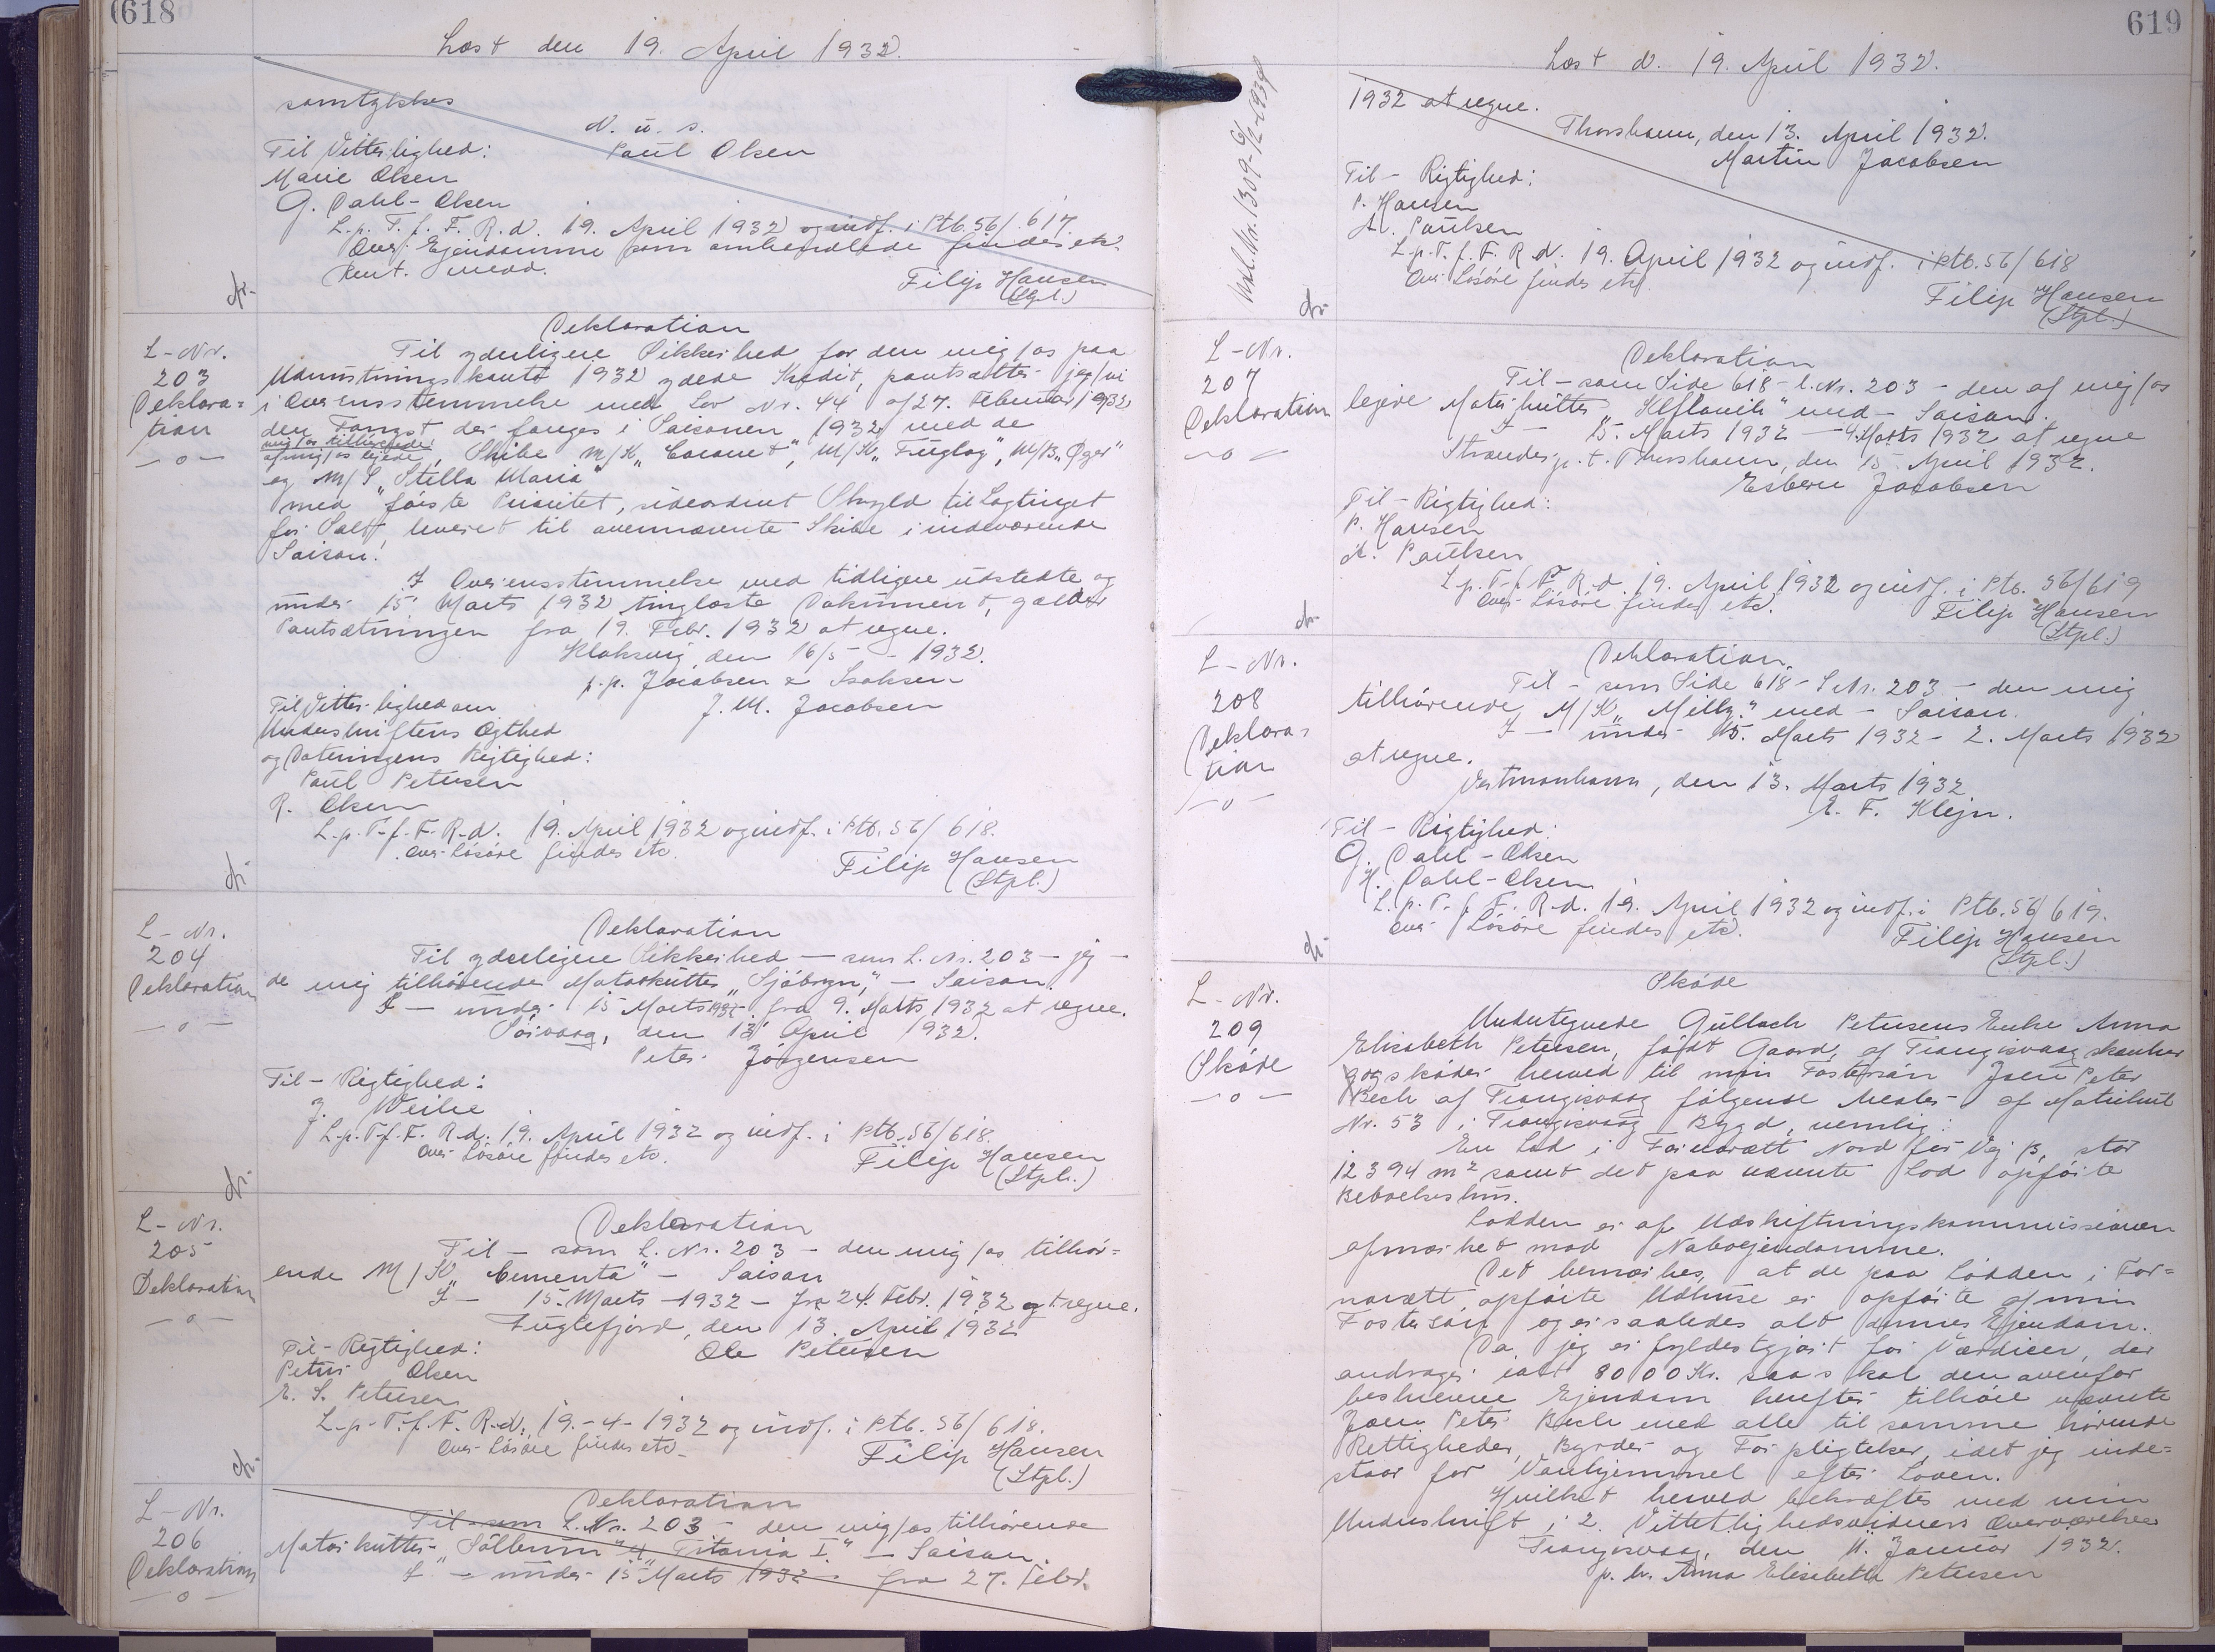 618
Læst den 19. April 1932.
samtykkes
D. u. s.
Til Vitterlighed: Paul Olsen
Marie Olsen
G. Dahl-Olsen
L.p. T. f. F. R. d. 19. April 1932 og indf. i Ptb. 56/617.
Over Ejendomme som omhandlede findes etc.
Filip Hansen
(Stpl.)
L-Nr.
203
Deklara=
tion
—o—
Deklaration
Til yderligere Sikkerhed for den mig/os paa
Udrustningskonto 1932 ydede Kredit, pantsætter jeg/vi
i Overensstemmelse med Lov Nr. 44 af 27. Februar 1932
den Fangst der fanges i Saisonen 1932 med de
mig/os tilhørende
af mig/os lejede, Skibe M/K „Coronet", M/K „Fugløy", M/B „Øger"
og M/S „Stella Maria"
med første Prioritet, sideordnet Skyld til Lagtinget
for Salt, leveret til ovennævnte Skibe i indeværende
Saison.
I Overensstemmelse med tidligere udstedte og
under 15' Marts 1932 tinglæste Dokument, gælder
Pantsætningen fra 19. Febr. 1932 at regne.
Klaksvig, den 16/3 - 1932.
p.p. Jacobsen & Isaksen
J. M. Jacobsen
Til Vitterlighed om
Underskriftens Ægthed
og Dateringens Rigtighed:
Paul Petersen
R. Olsen
L.p. T. f. F. R. d. 19. April 1932 og indf. i Ptb. 56/618.
Over Løsøre findes etc.
Filip Hansen
(Stpl.)
L-Nr.
204
Deklaration
—o—
Deklaration
Til yderligere Sikkerhed — som L. Nr. 203 — jeg —
de mig tilhørende Motorkutter „Sjóbryn", — Saison.
I — under 15 Marts 1932 fra 9. Marts 1932 at regne.
Sörvaag, den 13' April 1932.
Peter Jörgensen
Til - Rigtighed:
J. Weihe
L.p. T. f. F. R. d. 19. April 1932 og indf. i Ptb. 56/618.
Over Løsøre findes etc.
Filip Hansen
(Stpl.)
L-Nr.
205
Deklaration
—o—
Deklaration
Til — som L. Nr. 203 — den mig/os tilhør=
ende M/K „Cementa" — Saison
I — 15. Marts 1932 — fra 24. Febr. 1932 at regne.
Fuglefjord, den 13. April 1932
Til - Rigtighed: Ole Petersen
Petur Olsen
E. S. Petersen
L.p. T. f. F. R. d. 19.-4-1932 og indf. i Ptb. 56/618.
Over Løsøre findes etc.
Filip Hansen
(Stpl.)
L-Nr.
206
Deklaration
—o—
Deklaration
Til — som L. Nr. 203 — den mig/os tilhørende
Motorkutter „Titania I." — Saison.
I — under 15 Marts 1932 — fra 27. Febr.
619
Læst d. 19. April 1932.
1932 at regne.
Thorshavn, den 13. April 1932.
Martin Jacobsen
Til - Rigtighed:
P. Hansen
A. Poulsen
L.p. T. f. F. R. d. 19. April 1932 og indf. i Ptb. 56/618
Over Løsøre findes etc.
Filip Hansen
(Stpl.)
L-Nr.
207
Deklaration
—o—
Deklaration
Til — som Side 618 - L. Nr. 203 — den af mig/os
lejede Motorkutter „Keflavik" med — Saison.
I — 15. Marts 1932 — 4. Marts 1932 at regne
Strænder, p. t. Thorshavn, den 15. April 1932.
Esbern Jacobsen
Til - Rigtighed:
P. Hansen
A. Poulsen
L.p. T. f. F. R. d. 19. April 1932 og indf. i Ptb. 56/619
Over Løsøre findes etc.
Filip Hansen
(Stpl.)
L-Nr.
208
Deklara=
tion
—o—
Deklaration.
Til — som Side 618 - L Nr. 203 — den mig
tilhørende M/K „Milly" med — Saison.
I — under 15. Marts 1932 - 2. Marts 1932
at regne.
Vestmanhavn, den 13. Marts 1932
E. F. Klejn.
Til - Rigtighed:
G. Dahl-Olsen
H. Dahl-Olsen
L.p. T. f. F. R. d. 19. April 1932 og indf. i Ptb. 56/619.
Over Løsøre findes etc.
Filip Hansen
(Stpl.)
L-Nr.
209
Skøde
—o—
Skøde
Undertegnede Gullach Petersens Enke Anna
Elisabeth Petersen, født Gaard, af Trangisvaag skænker
og skøder herved til min Fostersøn Joen Peter
Bech af Trangisvaag følgende Andele af Matrikul
Nr. 53 i Trangisvaag Bygd, nemlig:
En Lod i Fornarætt Nord for Vej B, stor
12394 m² samt det paa nævnte Lod opførte
Beboelseshus.
Lodden er af Udskiftningskommissionen
afmærket mod Naboejendomme.
Det bemærkes, at de paa Lodden i For=
narætt opførte Udhuse er opførte af min
Fostersøn og er saaledes alt dennes Ejendom.
Da jeg er fyldestgjort for Værdien, der
andrager ialt 8000 Kr. saa skal den ovenfor
beskrevne Ejendom herefter tilhøre nævnte
Joen Peter Bech med alle til samme hørende
Rettigheder, Byrder og Forpligtelser, idet jeg inde=
staar for Vanhjemmel efter Loven.
Hvilket herved bekræftes med min
Underskrift i 2 Vitterlighedsvidners Overværelse
Trangisvaag, den 11. Januar 1932.
p. h. Anna Elisabeth Petersen